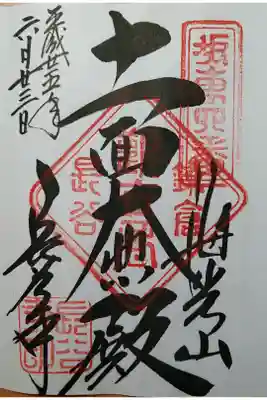 坂東四番
海光山
鎌倉
十一面大悲殿
長谷
長谷寺
平成廿五年
六月廿三日